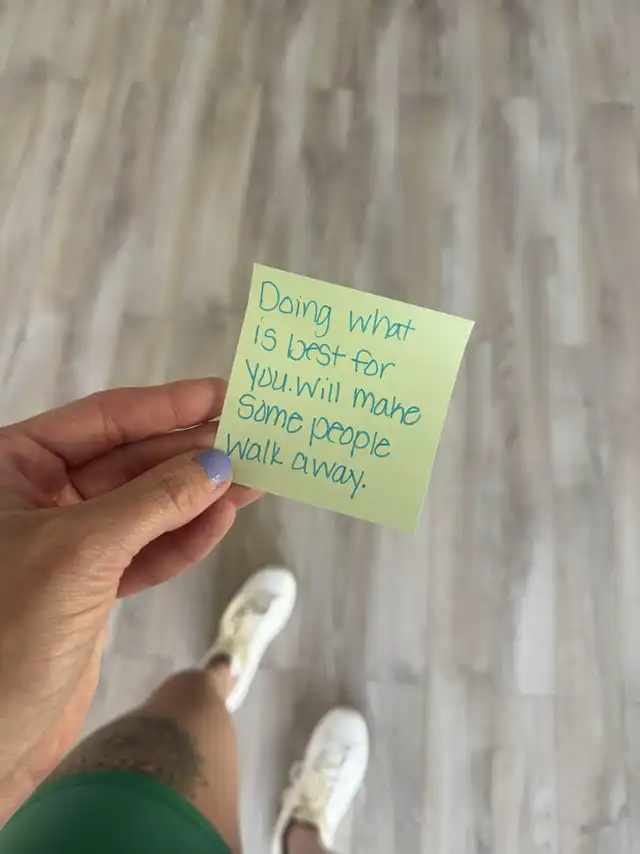 Doing what
is best for
you. Will make
Some people
walk away.